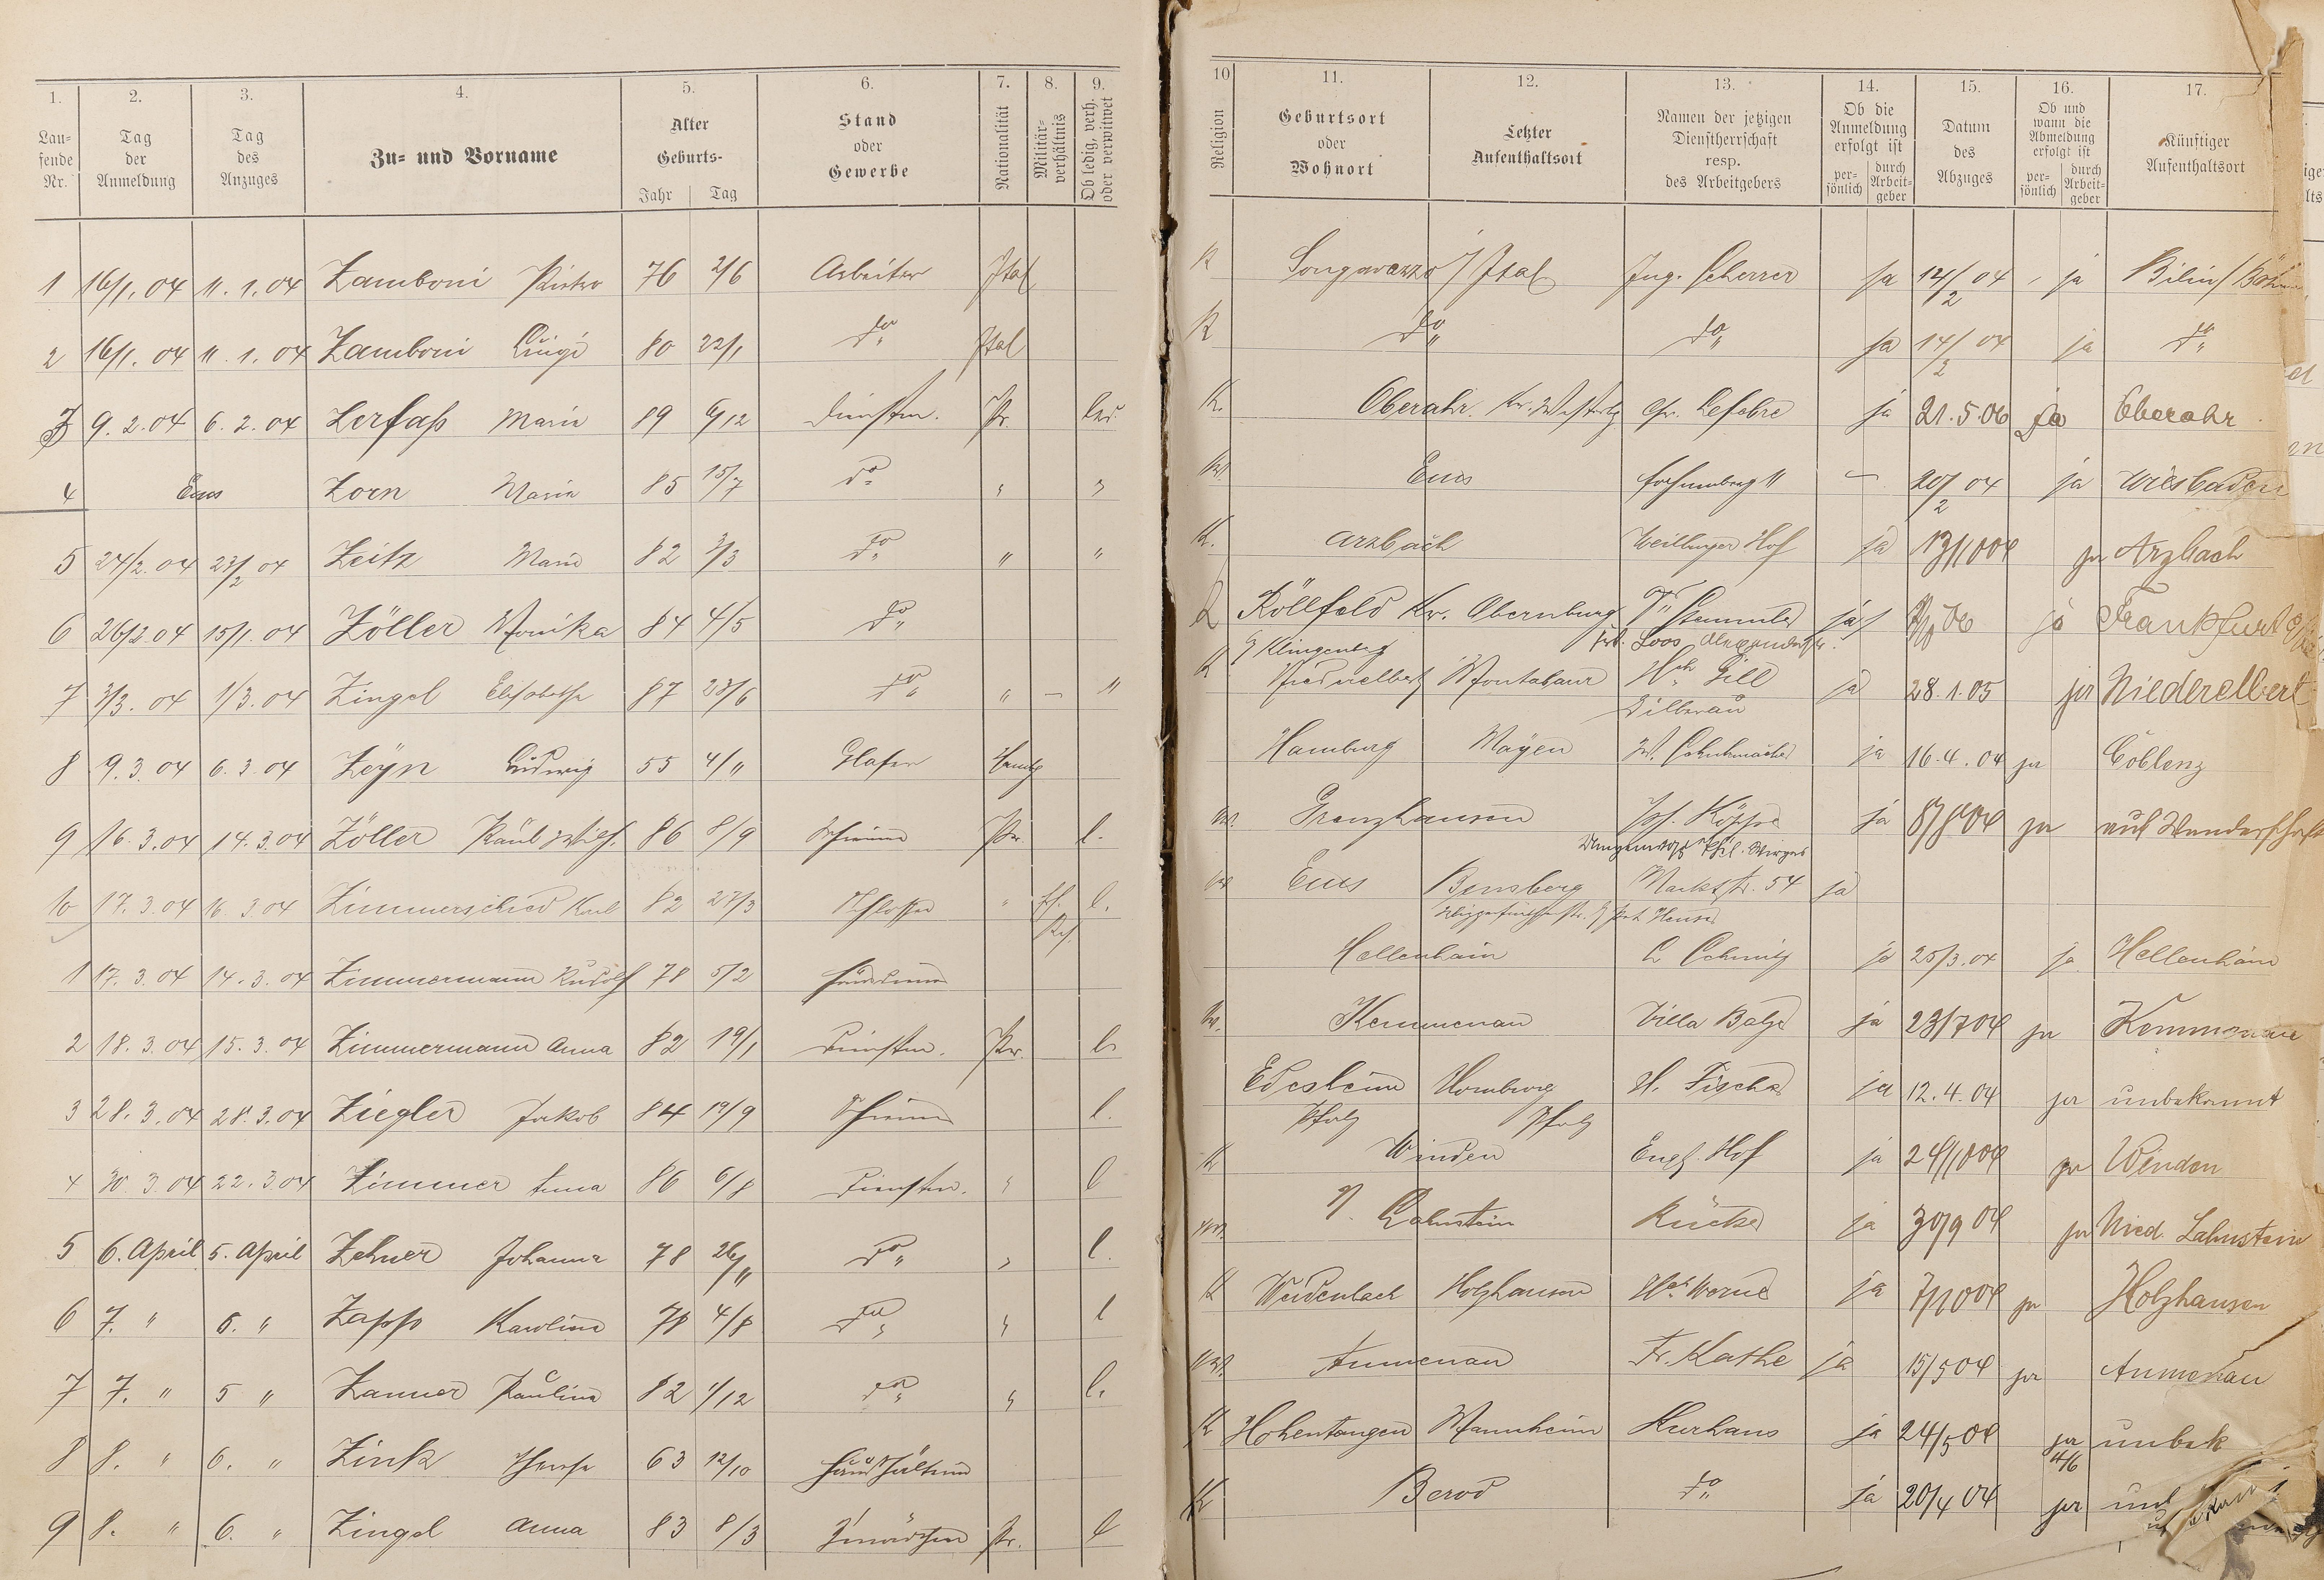 1. 2. 3. 4. 5. 6. 7. 8. 9. 10 11. 12. 13. 14. 15. 16. 17.
Laufende Nr.
Tag der Anmeldung
Tag des Anzuges
Zu- und Vorname
Alter Geburts- Jahr Tag
Stand oder Gewerbe
Nationalität
Militär-verhältnis
Ob ledig, verh. oder verwitwet
Religion
Geburtsort oder Wohnort
Letzter Aufenthaltsort
Namen der jetzigen Dienstherrschaft resp. des Arbeitgebers
Ob die Anmeldung erfolgt ist per-sönlich durch Arbeit-geber
Datum des Abzuges
Ob und wann die Abmeldung erfolgt ist per-sönlich durch Arbeit-geber
Künftiger Aufenthaltsort
1 16/1. 04 11. 1. 04 Zamboni Pietro 76 2/6 Arbeiter Ital K Longarazzo / Ital Ing. Scherrer ja 14/2 04 ja Bilin / Böhm
2 16/1. 04 11. 1. 04 Zamboni Luigi 80 22/1 do Ital K do do ja 14/2 04 ja do
3 9. 2. 04 6. 2. 04 Zerfaß Maria 89 6/12 Dienstm. Pr. led. K. Oberahr Kr. Westerbg Chr. Lefebre ja 21. 5. 06 Ja Oberahr
4 Ems Zorn Maria 85 15/7 do " " Ems 11 – 20/2 04 ja Wiesbaden
5 24/2. 04 23/2 04 Zeitz Maria 82 3/3 do " " K. Arzbach Weilburger Hof ja 13/10 04 ja Arzbach
6 26/2. 04 15/1. 04 Zöller Monika 84 4/5 do Röllfeld Kr. Obernburg Stemmler ja 06 ja Frankfurt
Klingenberg Loos
7 3/3. 04 1/3. 04 Zingel Elisabetha 87 23/6 do " – " K Niederelbert Montabaur Wh. Gill ja 28. 1. 05 ja Niederelbert
Silberau
8 9. 3. 04 6. 3. 04 Zeyn Ludwig 55 4/11 Glaser Hambg Hamburg Mayen W. Schuhmacher ja 16. 4. 04 ja Coblenz
9 16. 3. 04 14. 3. 04 Zöller Paul Wilh. 86 8/9 Schreiner Pr. l. Grenzhausen Jos. Köppe ja 8/8 04 ja auf Wanderschaft
Phil. Wirges
10 17. 3. 04 16. 3. 04 Zimmerschied Karl 82 27/3 Schlosser " l. Ems Bensberg Marktstr. 54 ja
1 17. 3. 04 14. 3. 04 Zimmermann Rudolf 78 5/2 Hellenhain L Schmitz ja 25/3. 04 ja Hellenhain
2 18. 3. 04 15. 3. 04 Zimmermann Anna 82 19/1 Dienstm. Pr. l. Kemmenau Villa Balzer ja 23/7 04 ja Kemmenau
3 28. 3. 04 28. 3. 04 Ziegler Jakob 84 19/9 Schreiner l. Edesheim Homburg H. Fischer ja 12. 4. 04 ja unbekannt
Pfalz Pfalz
4 30. 3. 04 22. 3. 04 Zimmer Anna 86 6/8 Dienstm. " l K Winden Engl. Hof ja 24/10 04 ja Winden
5 6. April 5. April Zehner Johanna 78 26/11 do " l. N. Lahnstein Rücker ja 30/9 04 ja Nied. Lahnstein
6 7. " 6. " Zapp Karolina 78 4/8 do " l K Weidenbach Holzhausen Werner ja 7/10 04 ja Holzhausen
7 7. " 5 " Zanner Paulina 82 4/12 do " l. Aumenau Fr. Kathe ja 15/5 04 ja Aumenau
8 8. " 6. " Zink Theresa 63 12/10 Haushälterin K Hohentengen Mannheim Kurhaus ja 24/5 04 ja unbek
4/6
9 8. " 6. " Zingel Anna 83 8/3 Pr. l K Berod do ja 20/4 04 ja